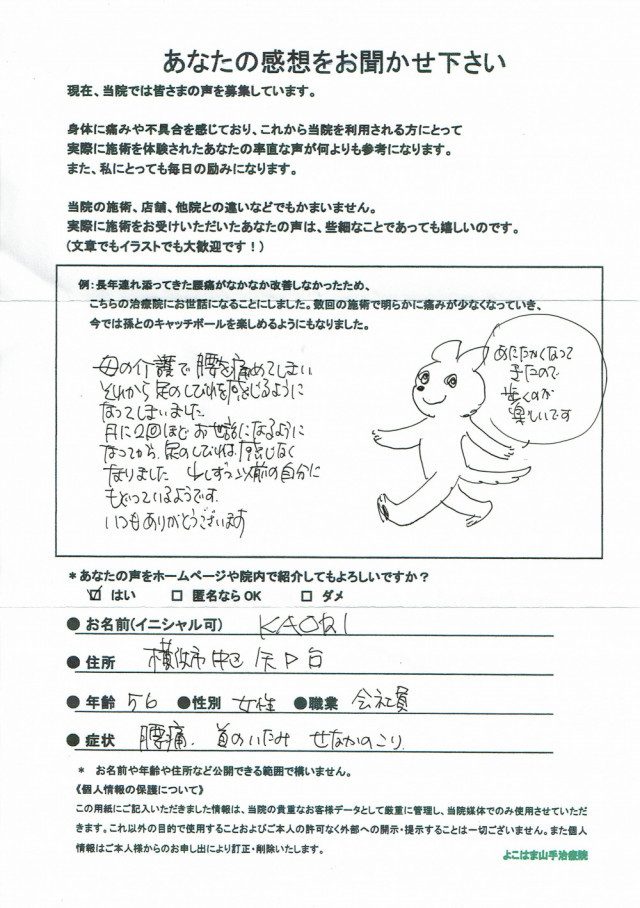 あなたの感想をお聞かせ下さい
現在、当院では皆さまの声を募集しています。
身体に痛みや不具合を感じており、これから当院を利用される方にとって
実際に施術を体験されたあなたの率直な声が何よりも参考になります。
また、私にとっても毎日の励みになります。
当院の施術、店舗、他院との違いなどでもかまいません。
実際に施術をお受けいただいたあなたの声は、些細なことであっても嬉しいのです。
(文章でもイラストでも大歓迎です！)
例：長年連れ添ってきた腰痛がなかなか改善しなかったため、
こちらの治療院にお世話になることにしました。数回の施術で明らかに痛みが少なくなっていき、
今では孫とのキャッチボールを楽しめるようにもなりました。
母の介護で腰を痛めてしまい
それから足のしびれを感じるように
なってしまいました
月に2回ほどお世話になるように
なってから、足のしびれは感じなく
なりました 少しずつ以前の自分に
もどっているようです。
いつもありがとうございます
あたたかくなって
きたので
歩くのが
楽しいです
*あなたの声をホームページや院内で紹介してもよろしいですか？
☑ はい □ 匿名ならOK □ ダメ
● お名前(イニシャル可) KAORI
● 住所 横浜市中区矢口台
● 年齢 56 ●性別 女性 ●職業 会社員
● 症状 腰痛、首のいたみ せなかのこり
* お名前や年齢や住所など公開できる範囲で構いません。
《個人情報の保護について》
この用紙にご記入いただきました情報は、当院の貴重なお客様データとして厳重に管理し、当院媒体でのみ使用させていただ
きます。これ以外の目的で使用することおよびご本人の許可なく外部への開示・提示することは一切ございません。また個人
情報はご本人様からのお申し出により訂正・削除いたします。
よこはま山手治療院